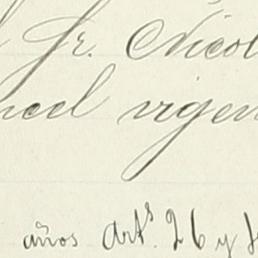 Sr. Nicol
ncel vigen
años Arts. 26 y